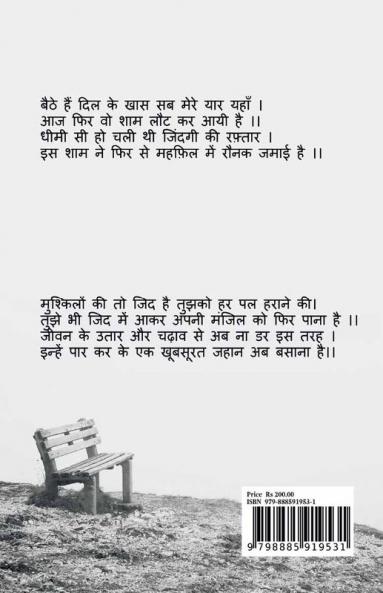 बैठे हैं दिल के खास सब मेरे यार यहाँ ।
आज फिर वो शाम लौट कर आयी है ।।
धीमी सी हो चली थी जिंदगी की रफ़्तार ।
इस शाम ने फिर से महफ़िल में रौनक जमाई है ।।
मुश्किलों की तो जिद है तुझको हर पल हराने की।
तुझे भी जिद में आकर अपनी मंजिल को फिर पाना है ।।
जीवन के उतार और चढ़ाव से अब ना डर इस तरह ।
इन्हें पार कर के एक खूबसूरत जहान अब बसाना है।।
Price Rs 200.00
ISBN 979-888591953-1
9 798885 919531